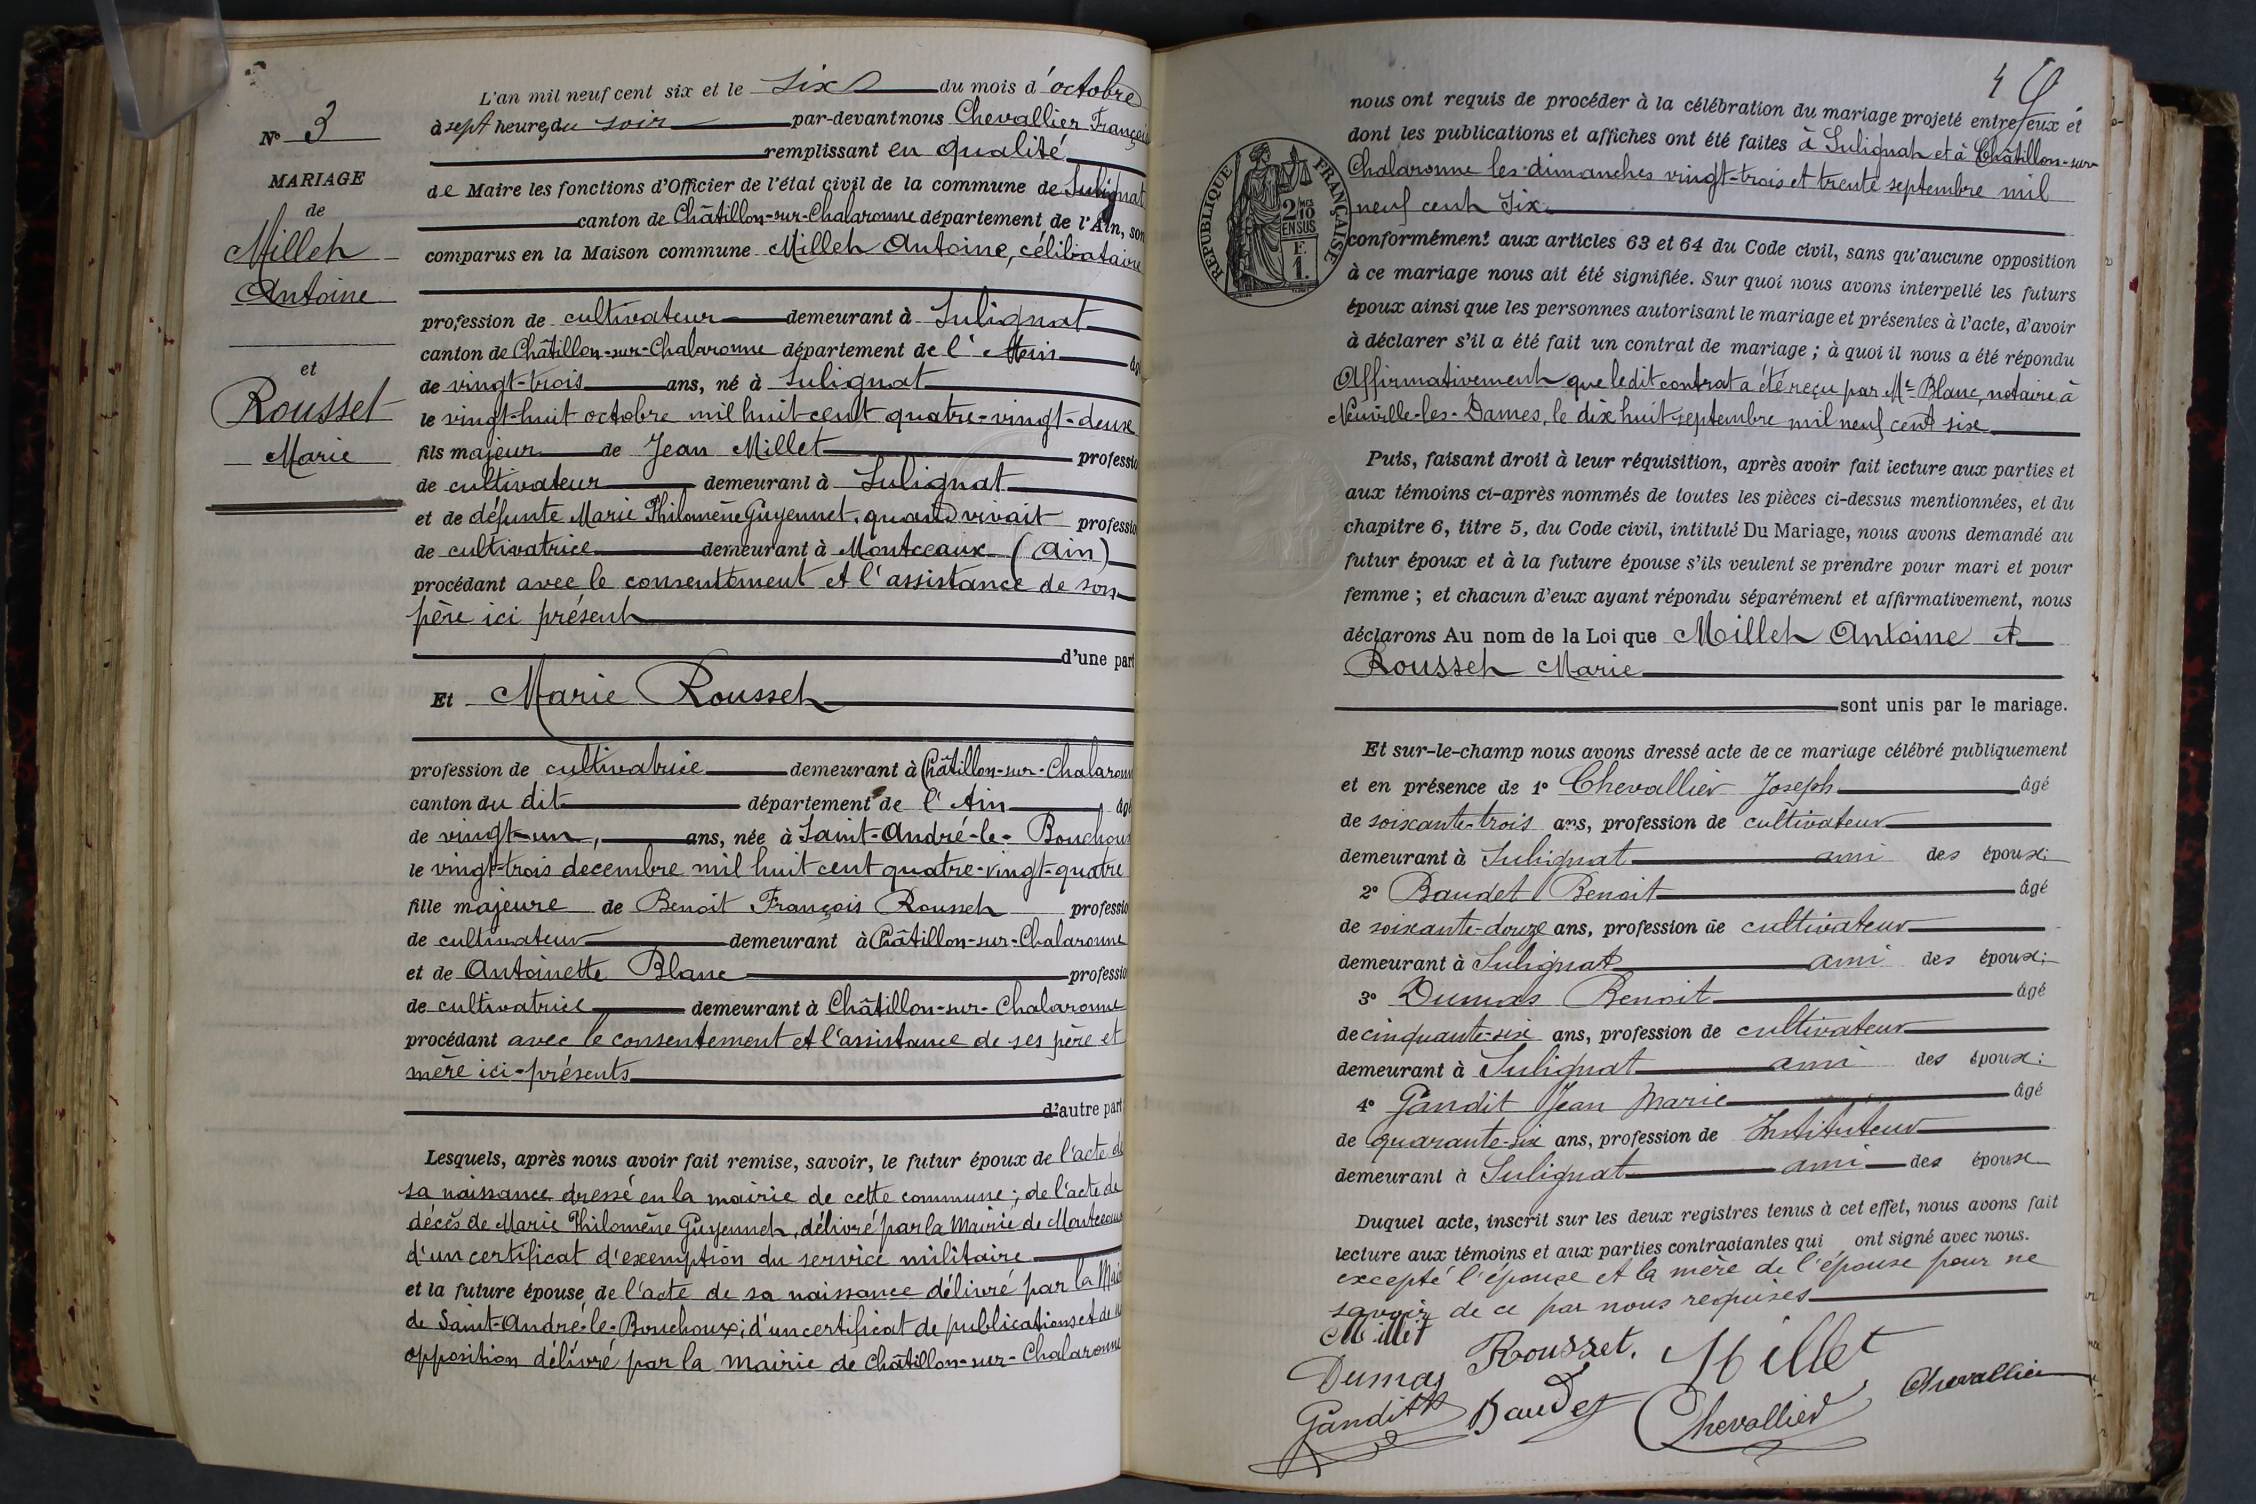 N° 3
MARIAGE
de
Millet
Antoine
et
Rousset
Marie
L'an mil neuf cent six et le six du mois d'octobre
à sept heures du soir par-devant nous Chevallier François
remplissant en qualité
de Maire les fonctions d'Officier de l'état civil de la commune de Sulignat
canton de Châtillon-sur-Chalaronne département de l'Ain, son
comparus en la Maison commune Millet Antoine, célibataire
profession de cultivateur demeurant à Sulignat
canton de Châtillon-sur-Chalaronne département de l'Ain âgé
de vingt-trois ans, né à Sulignat
le vingt-huit octobre mil huit cent quatre-vingt-deux
fils majeur de Jean Millet professio
de cultivateur demeurant à Sulignat
et de défunte Marie Philomène Guyennet, quand vivait professio
de cultivatrice demeurant à Montceaux (Ain)
procédant avec le consentement et l'assistance de son
père ici présent
d'une part
Et Marie Rousset
profession de cultivatrice demeurant à Châtillon-sur-Chalaronne
canton du dit département de l'Ain âgé
de vingt-un, ans, née à Saint-André-le-Bouchoux
le vingt-trois decembre mil huit cent quatre-vingt-quatre
fille majeure de Benoit François Rousset professio
de cultivateur demeurant à Châtillon-sur-Chalaronne
et de Antoinette Blanc professio
de cultivatrice demeurant à Châtillon-sur-Chalaronne
procédant avec le consentement et l'assistance de ses père et
mère ici-présents
d'autre part
Lesquels, après nous avoir fait remise, savoir, le futur époux de l'acte de
sa naissance dressé en la mairie de cette commune; de l'acte de
décès de Marie Philomène Guyennet, délivré par la Mairie de Montceaux
d'un certificat d'exemption du service militaire
et la future épouse de l'acte de sa naissance délivré par la Mairie
de Saint-André-le-Bouchoux; d'un certificat de publications et de
opposition délivré par la mairie de Châtillon-sur-Chalaronne
RÉPUBLIQUE FRANÇAISE
2/10 MES
EN SUS
F.
1.
nous ont requis de procéder à la célébration du mariage projeté entre eux et
dont les publications et affiches ont été faites à Sulignat et à Châtillon-sur-
Chalaronne les dimanches vingt-trois et trente septembre mil
neuf cent six
conformément aux articles 63 et 64 du Code civil, sans qu'aucune opposition
à ce mariage nous ait été signifiée. Sur quoi nous avons interpellé les futurs
époux ainsi que les personnes autorisant le mariage et présentes à l'acte, d'avoir
à déclarer s'il a été fait un contrat de mariage ; à quoi il nous a été répondu
Affirmativement que ledit contrat a été reçu par Me Blanc, notaire à
Neuville-les-Dames, le dix huit septembre mil neuf cent six
Puis, faisant droit à leur réquisition, après avoir fait lecture aux parties et
aux témoins ci-après nommés de toutes les pièces ci-dessus mentionnées, et du
chapitre 6, titre 5, du Code civil, intitulé Du Mariage, nous avons demandé au
futur époux et à la future épouse s'ils veulent se prendre pour mari et pour
femme ; et chacun d'eux ayant répondu séparément et affirmativement, nous
déclarons Au nom de la Loi que Millet Antoine et
Rousset Marie
sont unis par le mariage.
Et sur-le-champ nous avons dressé acte de ce mariage célébré publiquement
et en présence de 1° Chevallier Joseph âgé
de soixante-trois ans, profession de cultivateur
demeurant à Sulignat ami des époux;
2° Baudet Benoit âgé
de soixante-douze ans, profession de cultivateur
demeurant à Sulignat ami des époux;
3° Dumas Benoit âgé
de cinquante-six ans, profession de cultivateur
demeurant à Sulignat ami des époux;
4° Gandit Jean Marie âgé
de quarante-six ans, profession de Instituteur
demeurant à Sulignat ami des époux
Duquel acte, inscrit sur les deux registres tenus à cet effet, nous avons fait
lecture aux témoins et aux parties contractantes qui ont signé avec nous.
excepté l'épouse et la mère de l'épouse pour ne
savoir de ce par nous requises
Millet Rousset. Millet
Dumas Baudet Chevallier Chevallier
Gandit